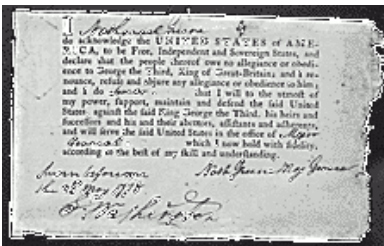 I Nathanael Greene
do acknowledge the UNITED STATES of AME-
RICA, to be Free, Independent and Sovereign States, and
declare that the people thereof owe no allegiance or obedi-
ence to George the Third, King of Great-Britain; and I re-
nounce, refuse and abjure any allegiance or obedience to him;
and I do swear that I will to the utmost of
my power, support, maintain and defend the said United
States against the said King George the Third, his heirs and
successors and his and their abettors, assistants and adherents,
and will serve the said United States in the office of Major
General which I now hold with fidelity,
according to the best of my skill and understanding.
Sworn before me Nath Greene Maj General
the 23d May 1778
G. Washington